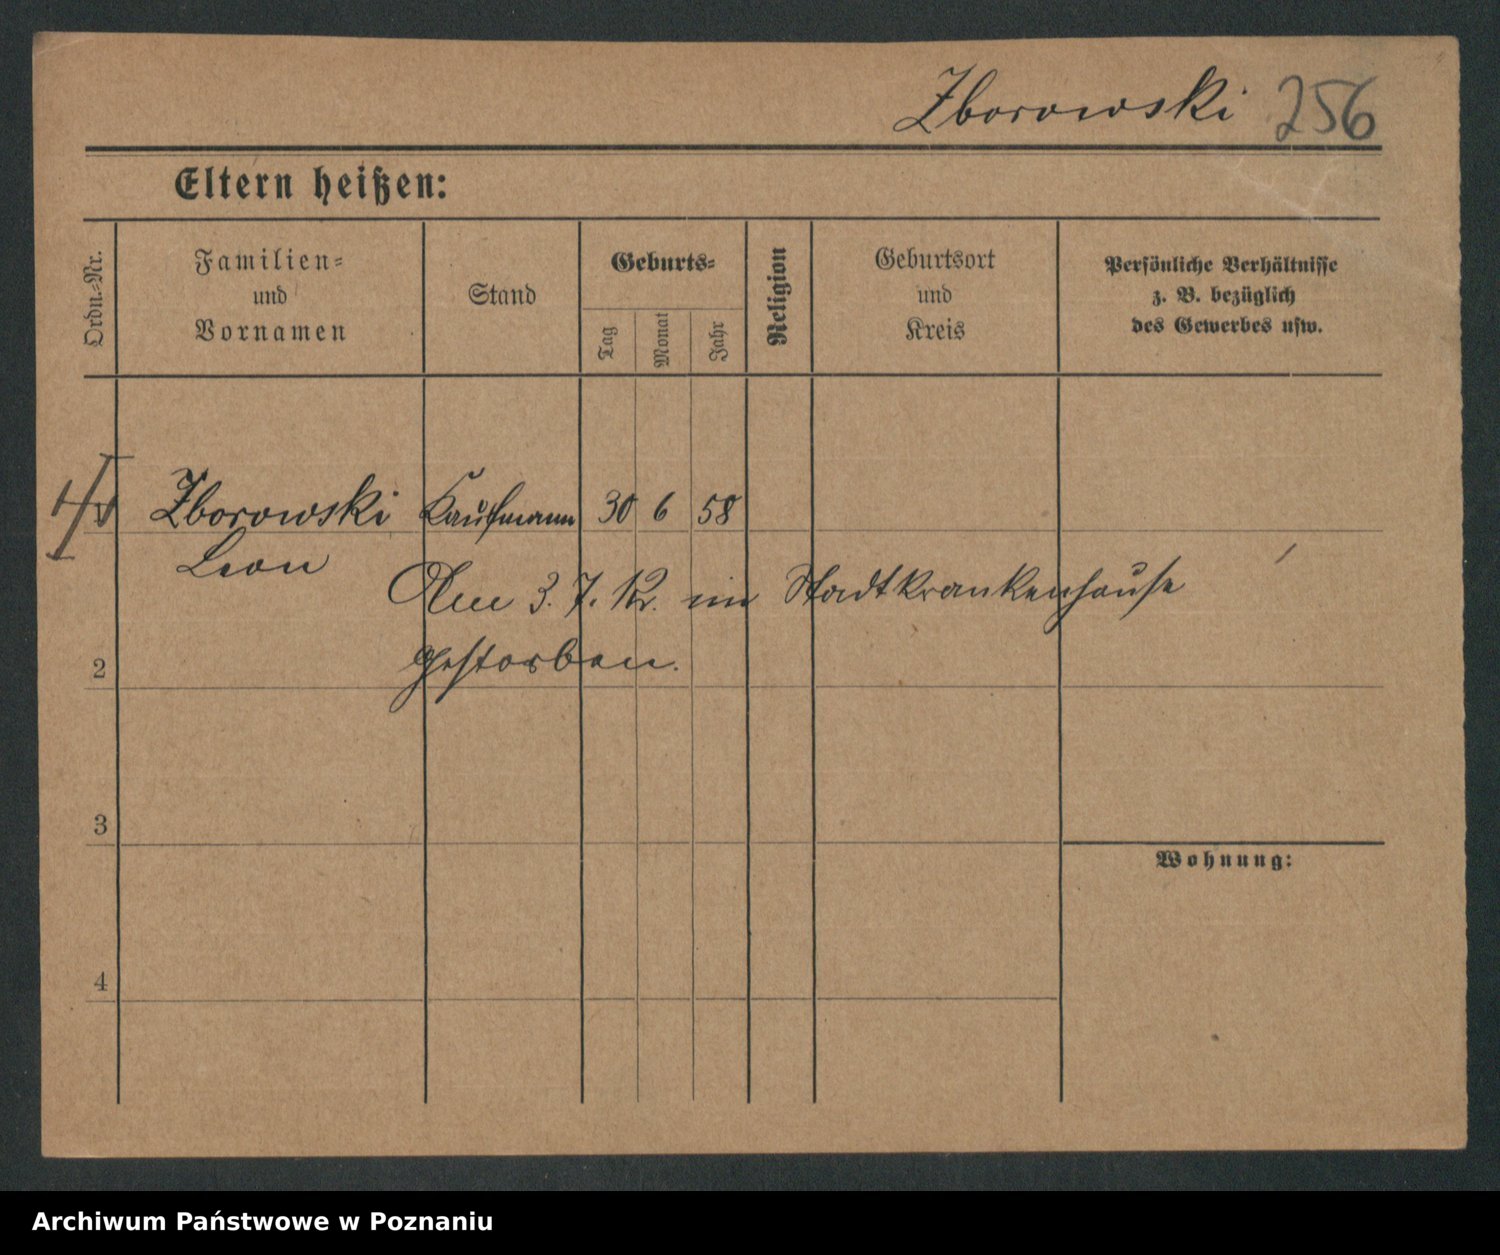 Zborowski 256
Eltern heißen:
Ordn.-Nr.
Familien-
und
Vornamen
Stand
Geburts-
Tag
Monat
Jahr
Religion
Geburtsort
und
Kreis
Persönliche Verhältnisse
z. B. bezüglich
des Gewerbes usw.
Zborowski Kaufmann 30 6 58
Leon
Am 3. 7. 12. im Stadtkrankenhause
gestorben.
2
3
Wohnung:
4
Archiwum Państwowe w Poznaniu